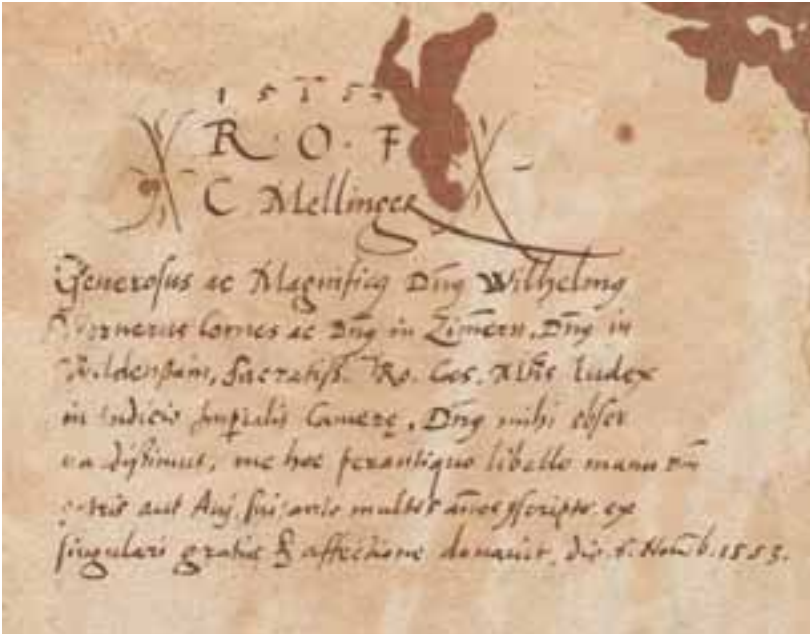 1 5 5 3
R · O · F
C Mellinger
Generosus ac Magnificus Dns Wilhelmus
Wernerus Comes ac Dns in Zimern, Dns in
Wildenstain, Sacratiss. Ro. Ces. Mtis Iudex
in Iudicio Imperialis Camerę, Dns mihi obser
uandissimus, me hoc perantiquo libello manu Dni
patris aut Aui sui ante multos annos scripto ex
singulari gratia & affectione donauit, die 6. Nouemb. 1553.